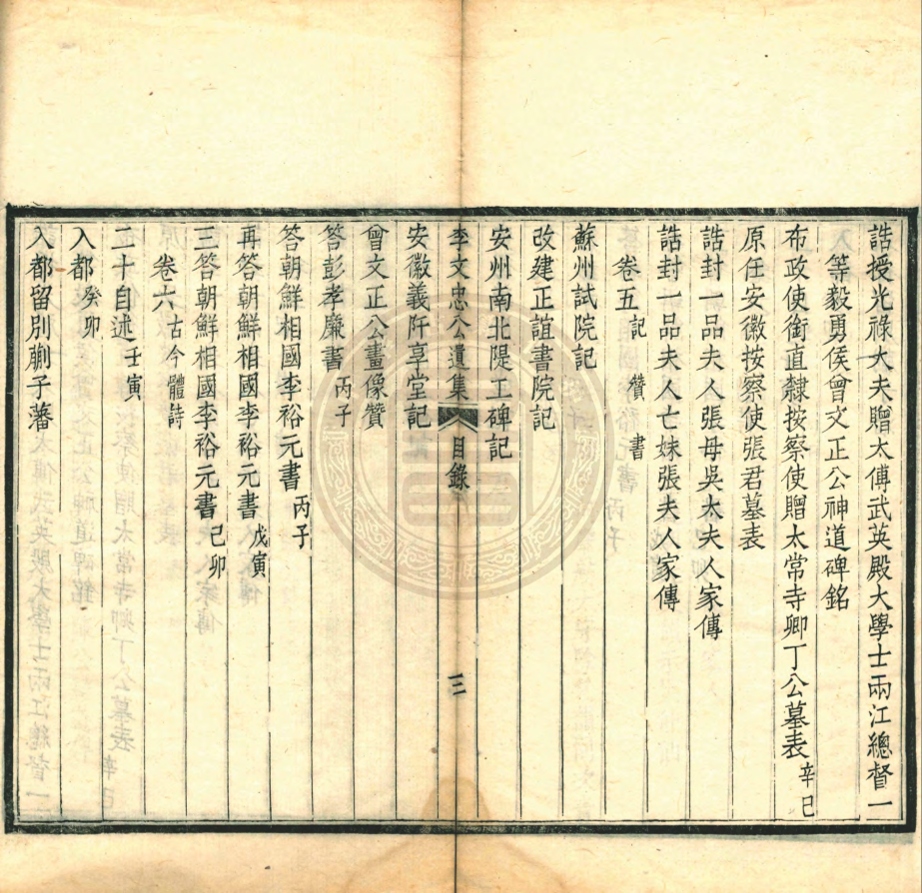 誥授光祿大夫贈太傅武英殿大學士兩江總督一
等毅勇侯曾文正公神道碑銘
布政使銜直隸按察使贈太常寺卿丁公墓表 辛巳
原任安徽按察使張君墓表
誥封一品夫人張母吳太夫人家傳
誥封一品夫人亡妹張夫人家傳
卷五 記 贊 書
蘇州試院記
改建正誼書院記
安州南北隄工碑記
李文忠公遺集 目錄 三
安徽義阡享堂記
曾文正公畫像贊
答彭孝廉書 丙子
答朝鮮相國李裕元書 丙子
再答朝鮮相國李裕元書 戊寅
三答朝鮮相國李裕元書 己卯
卷六 古今體詩
二十自述 壬寅
入都 癸卯
入都留別蒯子藩